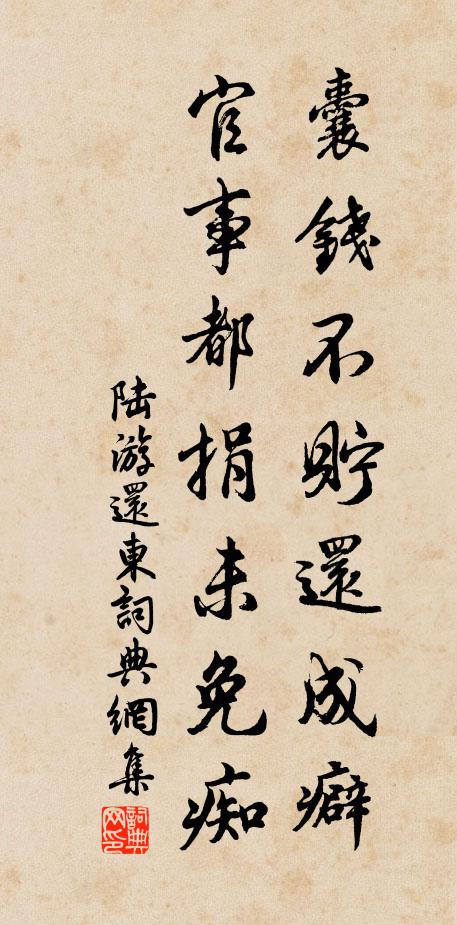 囊錢不貯還成癖
官事都捐未免痴
陆游還東詞典網集
詞典網印